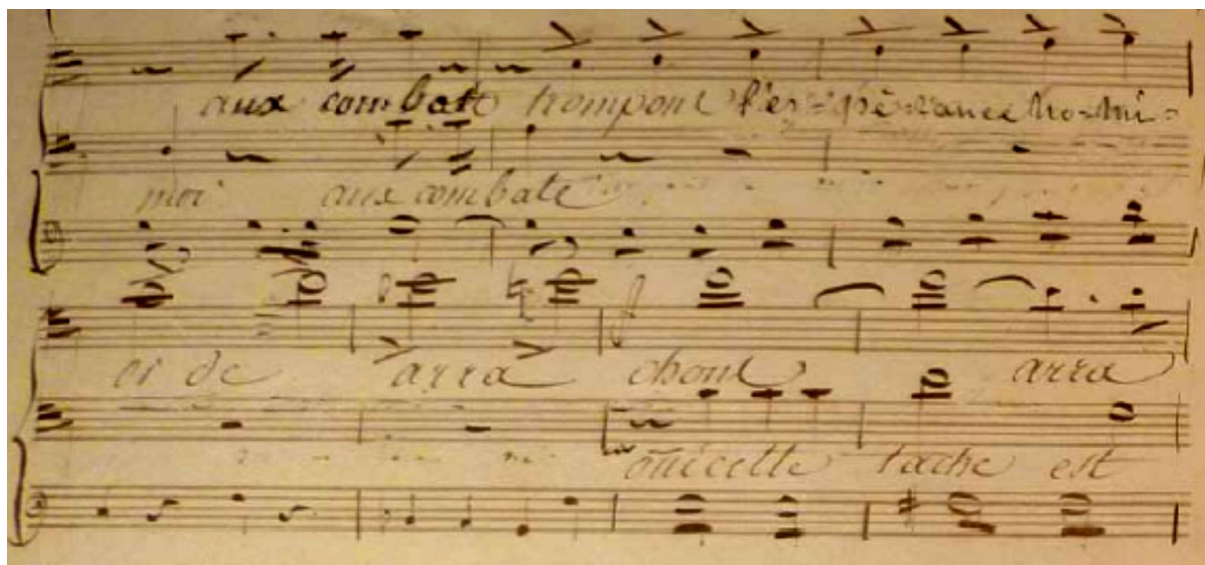 aux combats trompons l'es-pé-rance ho-mi-
moi aux combats
ci de arra chons arra
oui cette tache est